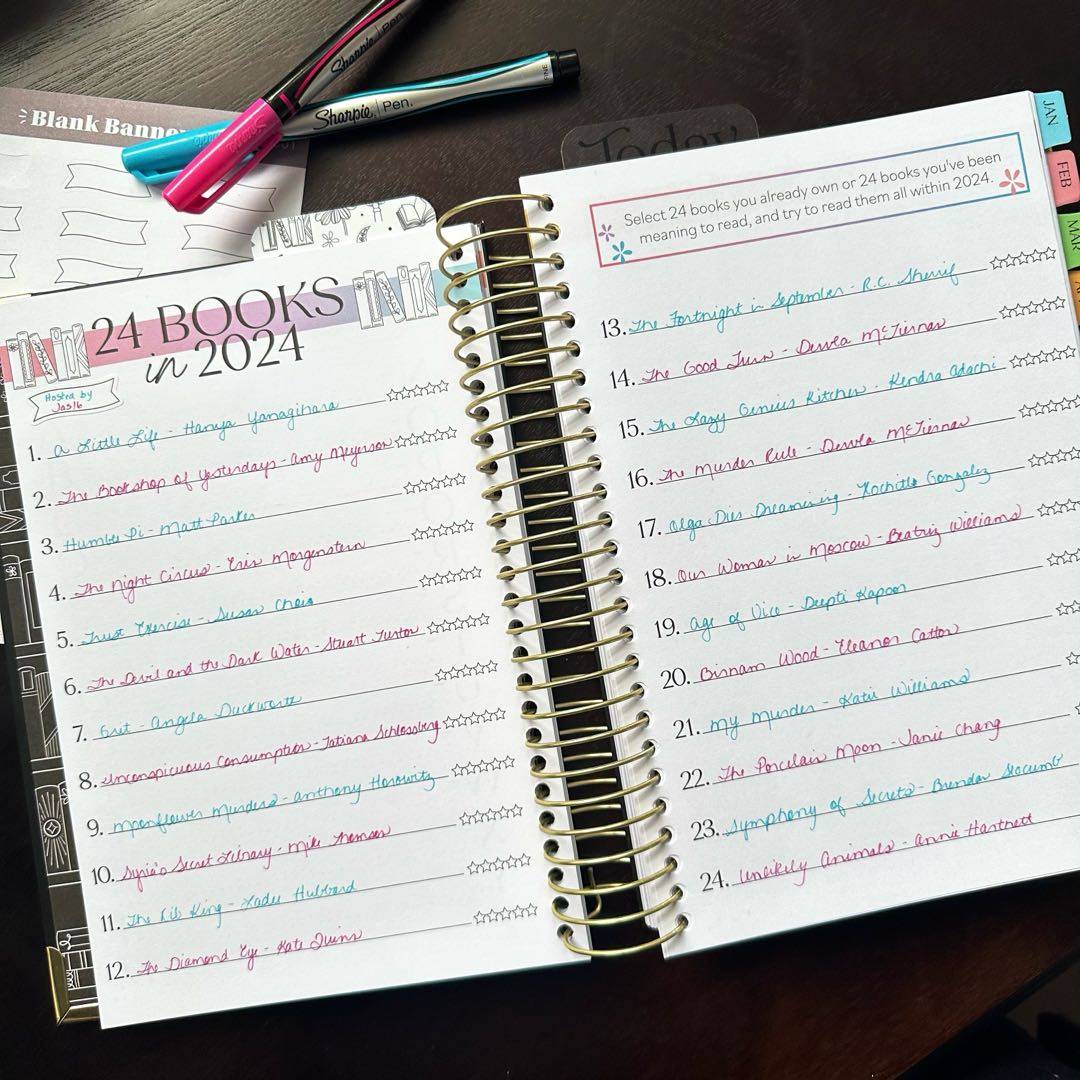 Blank Banne
Sharpie
Sharpie Pen.
FINE
Today
24 BOOKS
in 2024
Hosted by
Jas16
1. A Little Life - Hanya Yanagihara
2. The Bookshop of Yesterdays - Amy Meyerson
3. Humble Pi - Matt Parker
4. The Night Circus - Erin Morgenstern
5. Trust Exercise - Susan Choi
6. The Devil and the Dark Water - Stuart Turton
7. Grit - Angela Duckworth
8. Inconspicuous Consumption - Tatiana Schlossberg
9. Moonflower Murders - Anthony Horowitz
10. Syria's Secret Library - Mike Thomson
11. The Rib King - Ladee Hubbard
12. The Diamond Eye - Kate Quinn
Select 24 books you already own or 24 books you've been
meaning to read, and try to read them all within 2024.
13. The Fortnight in September - R.C. Sherrif
14. The Good Turn - Dervla McTiernan
15. The Lazy Genius Kitchen - Kendra Adachi
16. The Murder Rule - Dervla McTiernan
17. Olga Dies Dreaming - Xochitl Gonzalez
18. Our Woman in Moscow - Beatriz Williams
19. Age of Vice - Deepti Kapoor
20. Birnam Wood - Eleanor Catton
21. My Murder - Katie Williams
22. The Porcelain Moon - Janie Chang
23. Symphony of Secrets - Brendan Slocumb
24. Unlikely Animals - Annie Hartnett
JAN
FEB
MAR